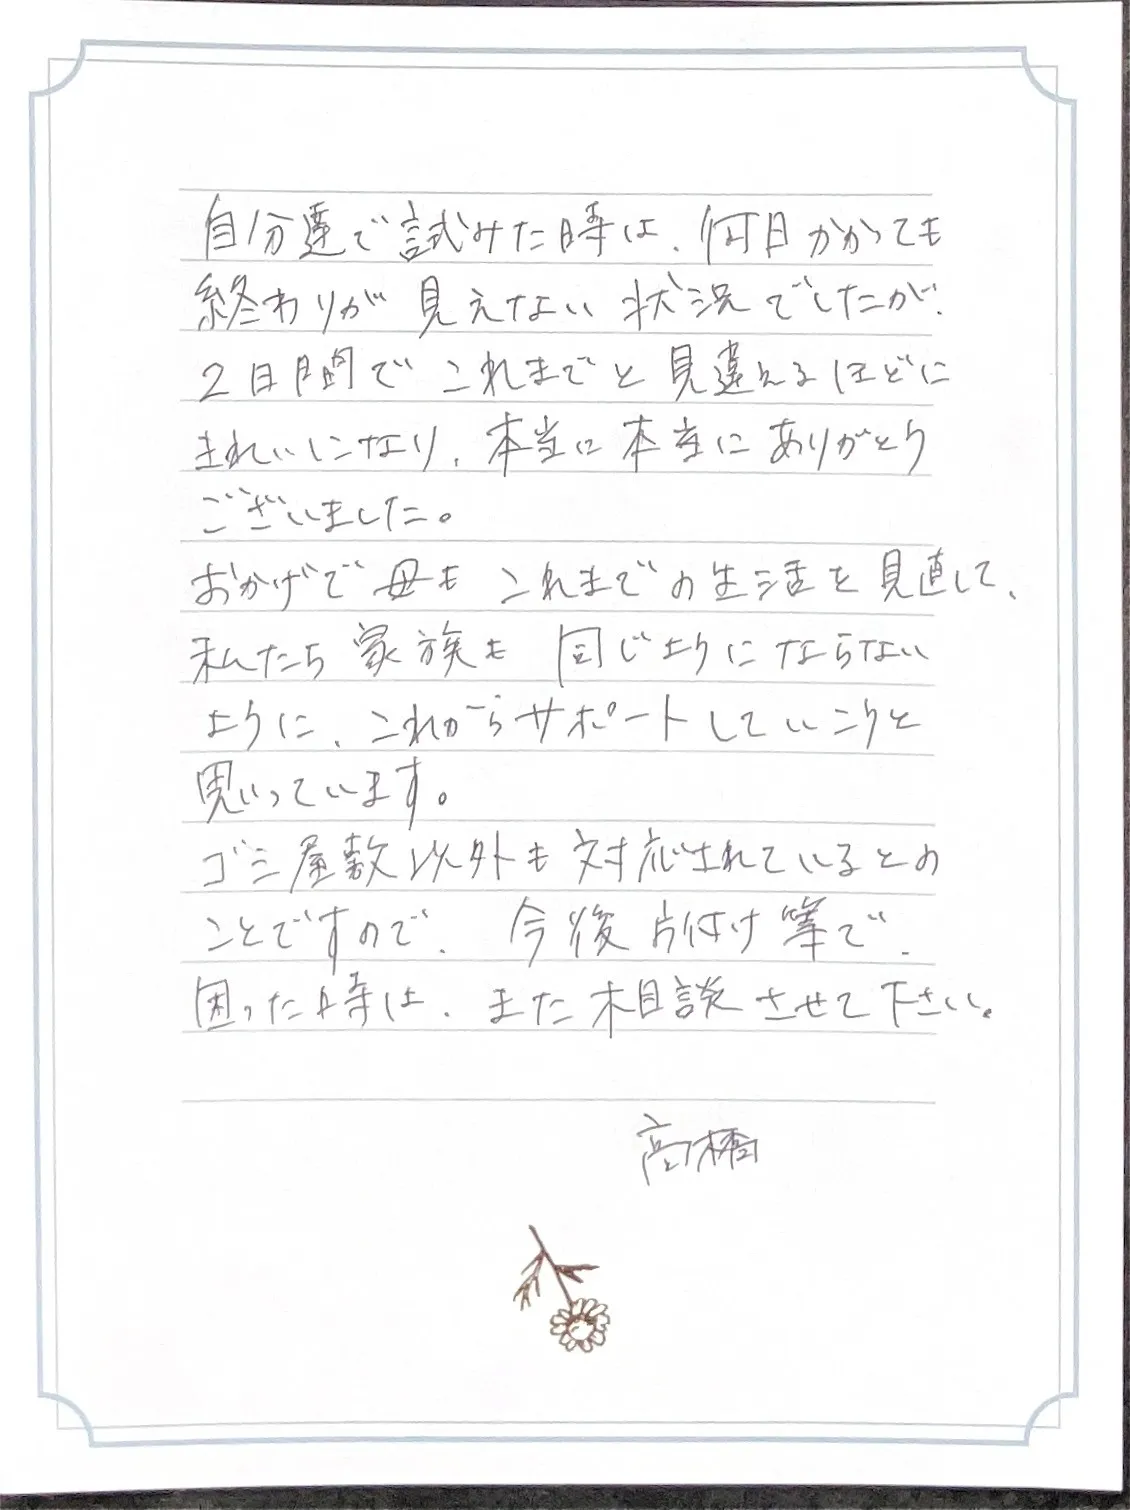 自分達で試みた時は、何日かかっても
終わりが見えない状況でしたが、
2日間でこれまでと見違えるほどに
きれいになり、本当に本当にありがとう
ございました。
おかげで母もこれまでの生活を見直して、
私たち家族も同じようにならない
ように、これからサポートしていこうと
思っています。
ゴミ屋敷以外も対応されているとの
ことですので、今後片付け等で、
困った時は、また相談させて下さい。
高橋